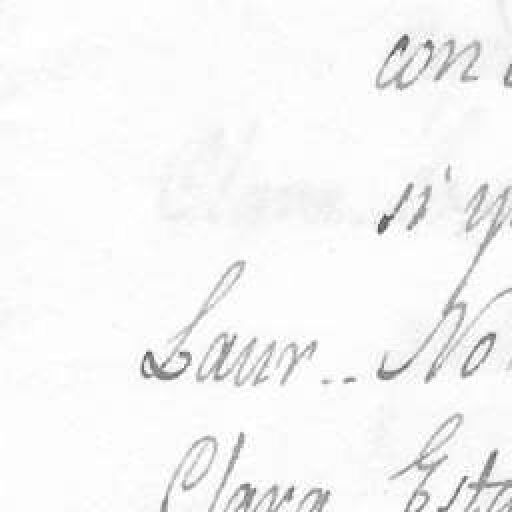 con
si
Laur.. No
Clara Esta